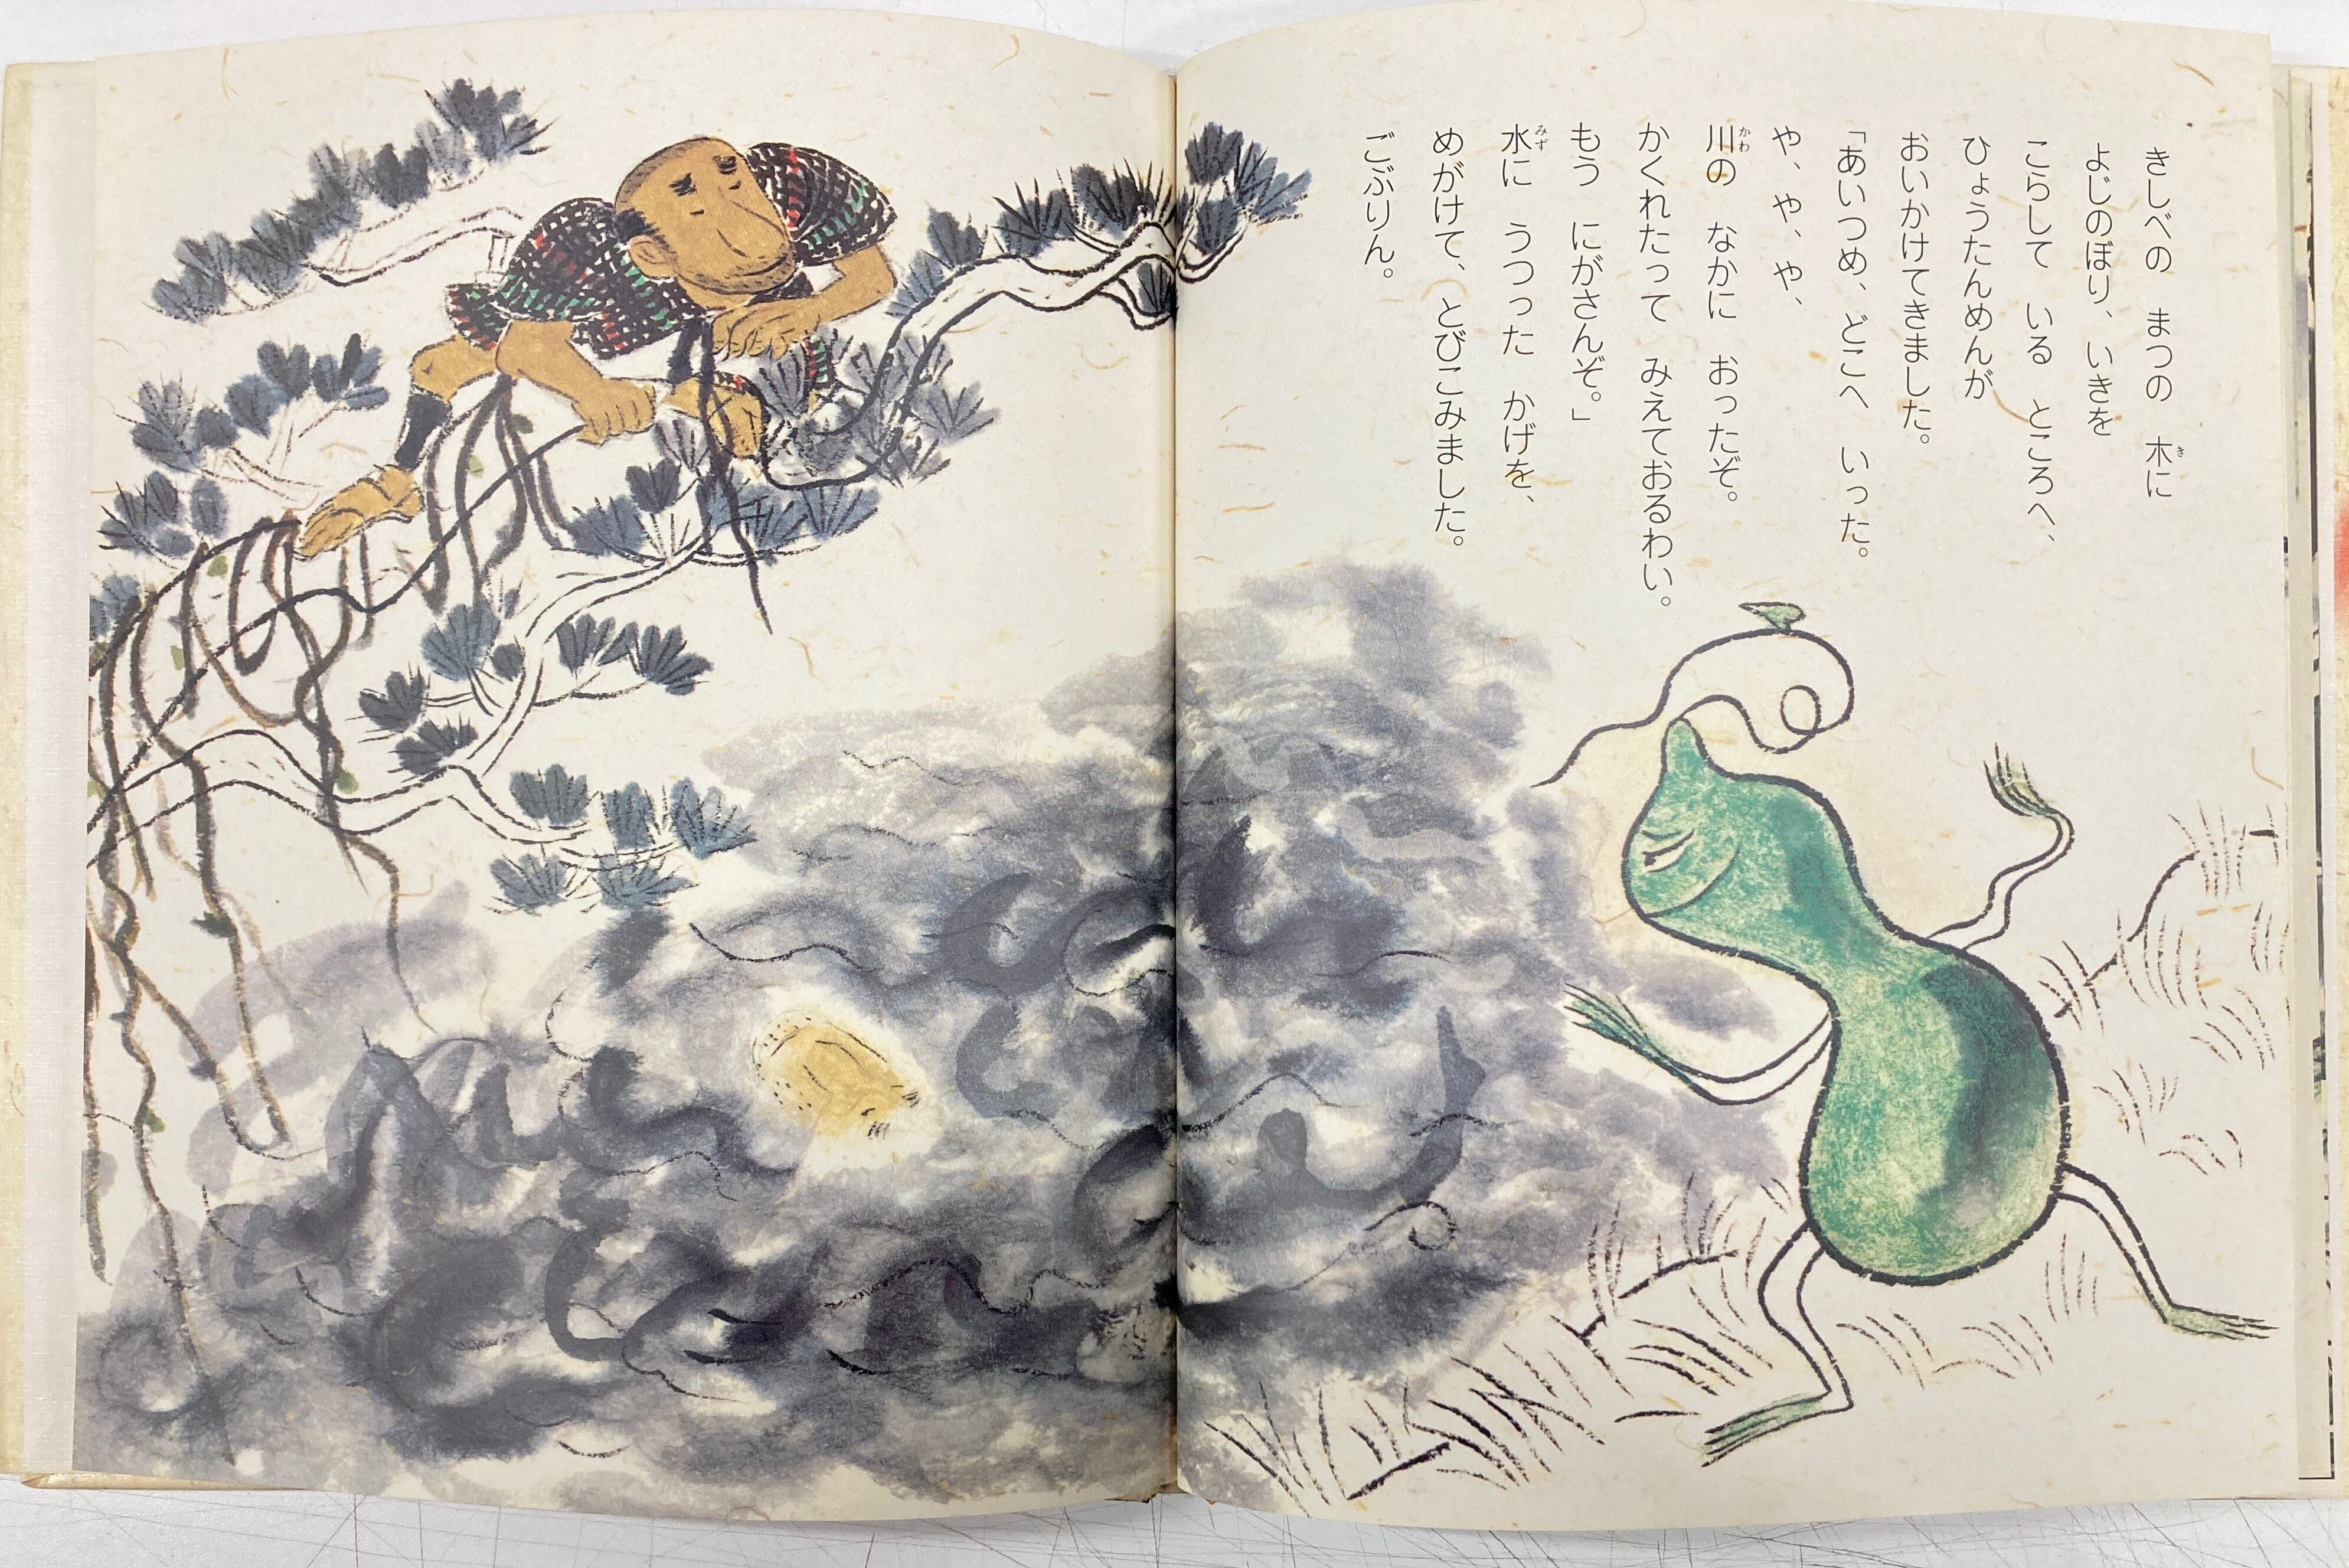 きしべの　まつの　木に
よじのぼり、いきを
こらして　いる　ところへ、
ひょうたんめんが
おいかけてきました。
「あいつめ、どこへ　いった。
や、や、や、
川の　なかに　おったぞ。
かくれたって　みえておるわい。
もう　にがさんぞ。」
水に　うつった　かげを、
めがけて、とびこみました。
ごぶりん。